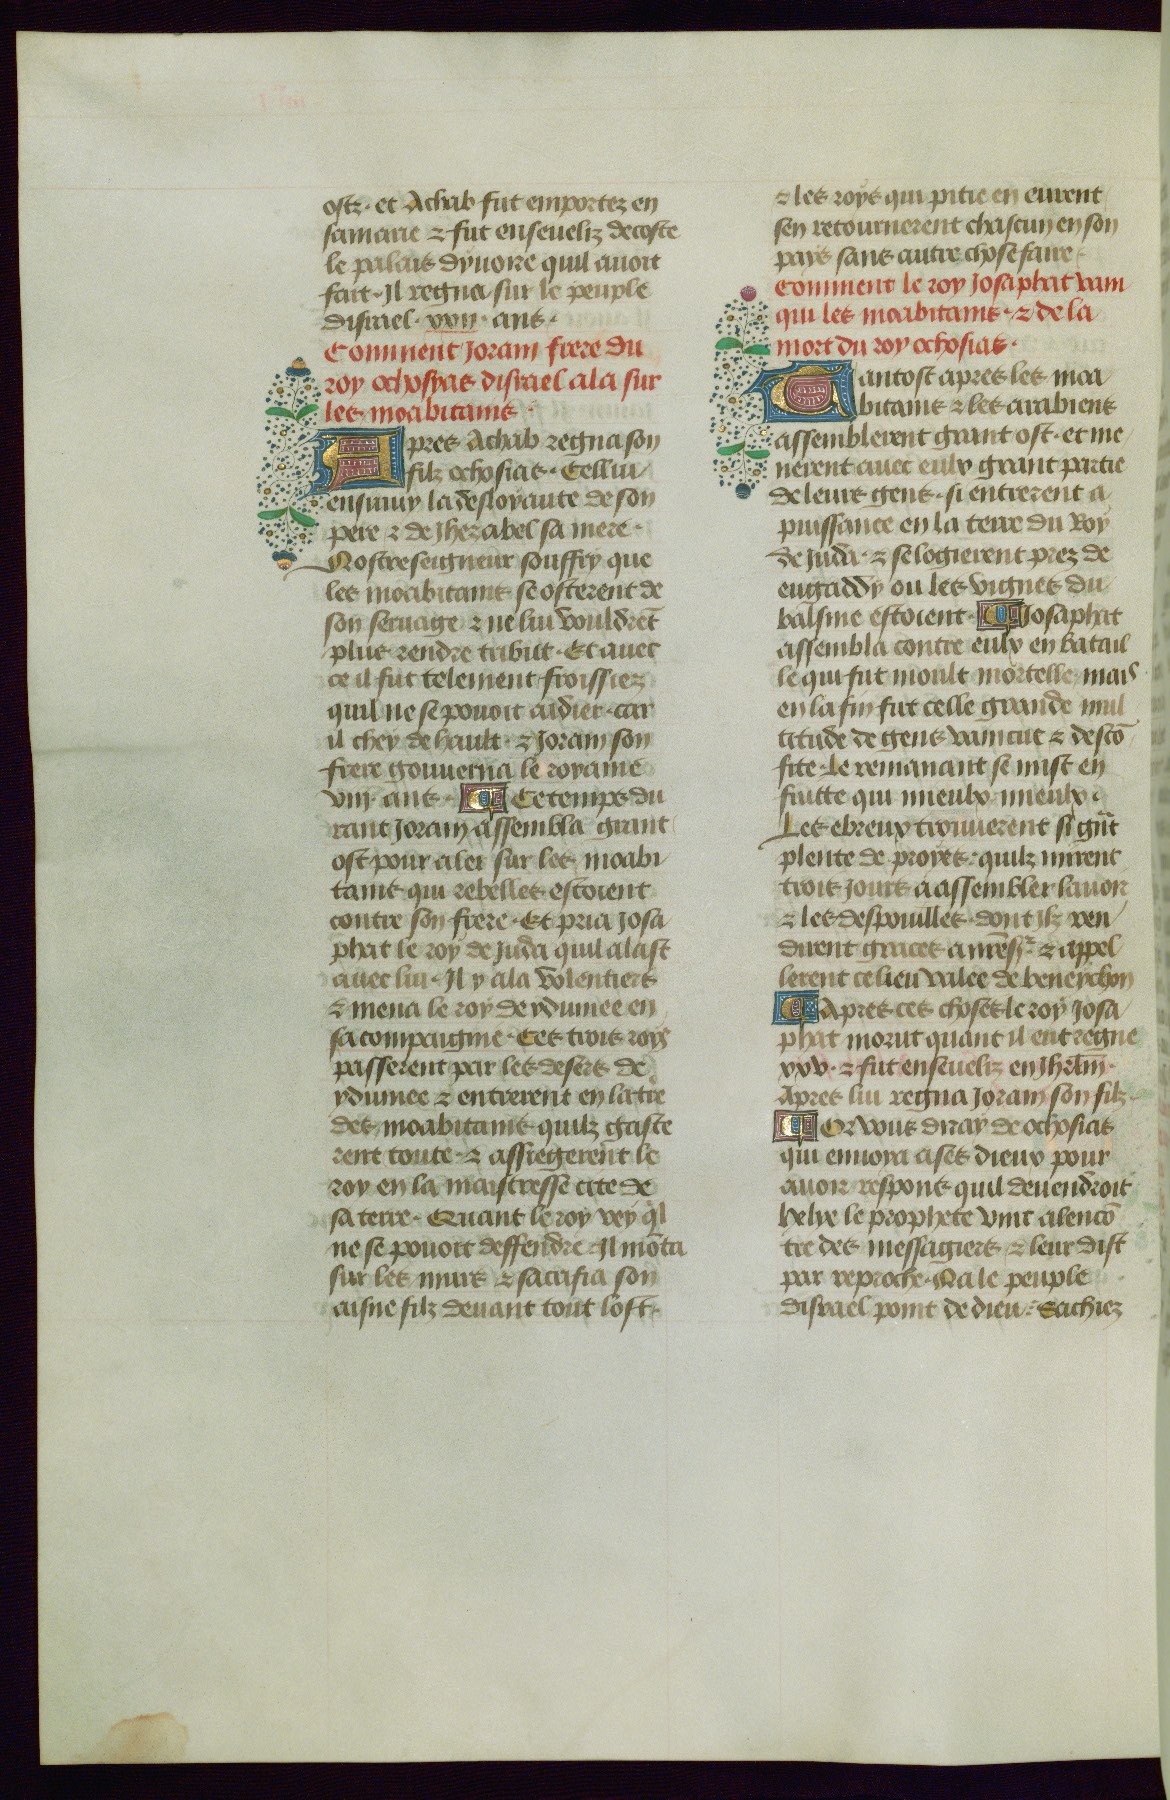 ostz · et Achab fut emportez en
samarie ⁊ fut enseueliz decoste
le palais dyuoire quil auoit
fait · Il regna sur le peuple
disrael · xxii · ans ·
Comment Joram frere du
roy ochosyas disrael ala sur
les moabitains ·
Apres Achab regna son
filz ochosias · Cellui
ensiuuy la desloyaute de son
pere ⁊ de Jhezabel sa mere ·
Nostreseigneur souffry que
les moabitains se osterent de
son seruage ⁊ ne lui vouldrēt
plus rendre tribut · Et auec
ce il fut telement froissiez
quil ne se pouoit aidier · car
il chey de hault · ⁊ Joram son
frere gouuerna le royaume
viii · ans · Ce temps du
rant Joram assembla grant
ost pour aler sur les moabi
tains qui rebelles estoient
contre son frere · Et pria Josa
phat le roy de Juda quil alast
auec lui · Il y ala volentiers
⁊ mena le roy de ydumee en
sa compaignie · Ces trois roys
passerent par les desers de
ydumee ⁊ entrerent en la tr̄e
des moabitains quilz gaste
rent toute · ⁊ assiegerent le
roy en la maistresse cite de
sa terre · Quant le roy vey q̄l
ne se pouoit deffendre · Il mōta
sur les murs ⁊ sacrifia son
aisne filz deuant tout lost ·
⁊ les roys qui pitie en eurent
sen retournerent chascun en son
pays sans autre chose faire ·
Comment le roy Josaphat vain
qui les moabitains · ⁊ de la
mort du roy ochosias ·
Tantost apres les moa
bitains ⁊ les arabiens
assemblerent grant ost · et me
nerent auec eulx grant partie
de leurs gens · si entrerent a
puissance en la terre du Roy
de Juda · ⁊ se logierent prez de
engaddy ou les vignes du
balsme estoient · Josaphat
assembla contre eulx en batail
le qui fut moult mortelle mais
en la fin fut celle grande mul
titude de gens vaincue ⁊ descō
fite · Le remanant se mist en
fuitte qui mieulx mieulx ·
Les ebreux trouuerent si gn̄t
plente de proyes · quilz mirent
trois Jours a assembler lauoir
⁊ les despouilles · dont ilz ren
dirent graces a nr̄e sr̄ · ⁊ appel
lerent ce lieu valee de beneychon
Apres ces choses le roy Josa
phat morut quant il eut regne
xxv · ⁊ fut enseueliz en Jhrl̄m ·
Apres lui regna Joram son filz ·
Or vous diray de ochosias
qui enuoya a ses dieux pour
auoir respons quil deuendroit
helye le prophete vint alencō
tre des messagiers ⁊ leur dist
par reproche · Na le peuple
disrael point de dieu · Sachiez